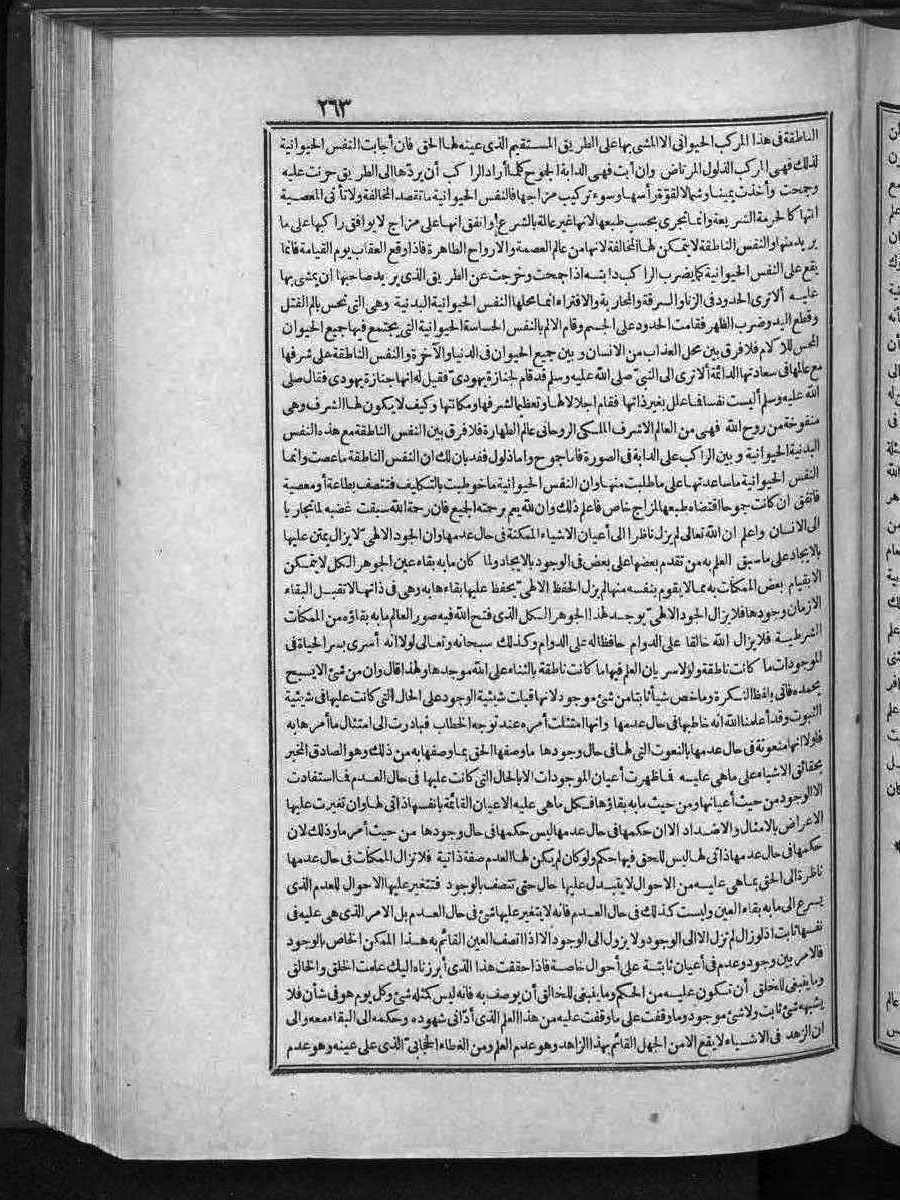 ٢٦٣
الناطقة فى هذا المركب الحيوانى الا المشى بها على الطريق المستقيم الذى عينه لها الحق فان أجابت النفس الحيوانية
لذلك فهى المركب الذلول المرتاض وان أبت فهى الدابة الجموح كلما أراد الراكب أن يردّها الى الطريق حرنت عليه
وجمحت وأخذت يمينا وشمالا لقوة رأسها وسوء تركيب مزاجها فالنفس الحيوانية ما تقصد المخالفة ولا تأتى المعصية
انتها كا لحرمة الشريعة وانما تجرى بحسب طبعها لانها غير عالمة بالشرع وانفق انها على مزاج لا يوافق راكبها على ما
يريد منها والنفس الناطقة لا يتمكن لها المخالفة لانها من عالم العصمة والارواح الطاهرة فاذا وقع العقاب يوم القيامة فانما
يقع على النفس الحيوانية كما يضرب الراكب دابته اذا جمحت وخرجت عن الطريق الذى يريد صاحبها ان يمشى بها
عليه ألا ترى الحدود فى الزنا والسرقة والمحاربة والافتراء انما محلها النفس الحيوانية البدنية وهى التى تحس بالم القتل
وقطع اليد وضرب الظهر فقامت الحدود على الجسم وقام الالم بالنفس الحساسة الحيوانية التى يجتمع فيها جميع الحيوان
المحس للآلام فلا فرق بين محل العذاب من الانسان و بين جميع الحيوان فى الدنيا والآخرة والنفس الناطقة على شرفها
مع عالمها فى سعادتها الدائمة ألا ترى الى النبىّ صلى الله عليه وسلم قد قام لجنازة يهودىّ فقيل له انها جنازة يهودى فقال صلى
الله عليه وسلم أليست نفسا فما علل بغير ذاتها فقام اجلالا لها وتعظيما لشرفها ومكانتها وكيف لا يكون لها الشرف وهى
منفوخة من روح الله فهى من العالم الاشرف الملكى الروحانى عالم الطهارة فلا فرق بين النفس الناطقة مع هذه النفس
البدنية الحيوانية و بين الراكب على الدابة فى الصورة فاما جوح واما ذلول فقد بان لك ان النفس الناطقة ما عصت وانما
النفس الحيوانية ما ساعدتها على ما طلبت منها وان النفس الحيوانية ما خوطبت بالتكليف فتتصف بطاعة أو معصية
فاتفق ان كانت جوحا اقتضاه طبعها لمزاج خاص فاعلم ذلك وان الله يعم برحته الجميع فان رحمة الله سبقت غضبه لما تجاريا
الى الانسان واعلم ان الله تعالى لم يزل ناظرا الى أعيان الاشياء الممكنة فى حال عدمها وان الجود الالهىّ لا يزال يمتن عليها
بالايجاد على ما سبق العلم به من تقدم بعضها على بعض فى الوجود بالايجاد ولما كان ما به بقاء عين الجوهر الكل لا يتمكن
الابقيام بعض الممكنات به مما لا يقوم بنفسه منها لم يزل الحفظ الالهىّ يحفظ عليها بقاءها به وهى فى ذاتها لا تقبل البقاء
الازمان وجودها فلا يزال الجود الالهىّ يوجد لهذا الجوهر الكل الذى فتح الله فيه صور العالم ما به بقاؤه من الممكنات
الشرطية فلا يزال الله خالقا على الدوام حافظاله على الدوام وكذلك سبحانه وتعالى لولا انه أسرى بسر الحياة فى
الموجودات ما كانت ناطقة ولولا سريان العلم فيها ما كانت ناطقة بالثناء على الله موجدها ولهذا قال وان من شئ الا يسبح
بحمده فاتى بلفظ النكرة وما خص شيأ ثابتا من شئ موجود لانها قبلت شيئية الوجود على الحال التى كانت عليها فى شيئية
الثبوت وقد أعلمنا الله انه خاطبها فى حال عدمها وانها امتثلت أمره عند توجه الخطاب فبادرت الى امتثال ما أمرها به
فلولا انها منعوتة فى حال عدمها بالنعوت التى لها فى حال وجودها ما وصفها الحق بما وصفها به من ذلك وهو الصادق المخبر
بحقائق الاشياء على ما هى عليه فما ظهرت أعيان الموجودات الا بالحال التى كانت عليها فى حال العدم فما استفادت
الا الوجود من حيث أعيانها ومن حيث ما به بقاؤها فكل ما هى عليه الاعيان القائمة بانفسها ذاتى لها وان تغيرت عليها
الاعراض بالامثال والاضداد الا ان حكمها فى حال عدمها ليس حكمها فى حال وجودها من حيث أمر ما وذلك لان
حكمها فى حال عدمها ذاتى لها ليس للحق فيها حكم ولو كان لم يكن لها العدم صفة ذاتية فلا تزال الممكنات فى حال عدمها
ناظرة الى الحق بما هى عليه من الاحوال لا يتبدل عليها حال حتى تتصف بالوجود فتتغير عليها الاحوال للعدم الذى
يسرع الى ما به بقاء العين وليست كذلك فى حال العدم فانه لا يتغير عليها شئ فى حال العدم بل الامر الذى هى عليه فى
نفسها ثابت اذ لو زال لم تزل الا الى الوجود ولا يزول الى الوجود الا اذا اتصف العين القائم به هذا الممكن الخاص بالوجود
فالامر بين وجود وعدم فى أعيان ثابتة على أحوال خاصة فاذا حققت هذا الذى أبرزناه اليك علمت الخلق والخالق
وما ينبغى للخلق أن تكون عليه من الحكم وما ينبغى للخالق أن يوصف به فانه ليس كمثله شئ وكل يوم هو فى شأن فلا
يشبهه شئ ثابت ولا شئ موجود وما وقفت على ما وقفت عليه من هذا العلم الذى أدّانى شهوده وحكمه الى البقاء معه والى
ان الزهد فى الاشياء لا يقع الا من الجهل القائم بهذا الزاهد وهو عدم العلم ومن الغطاء الحجابىّ الذى على عينه وهو عدم